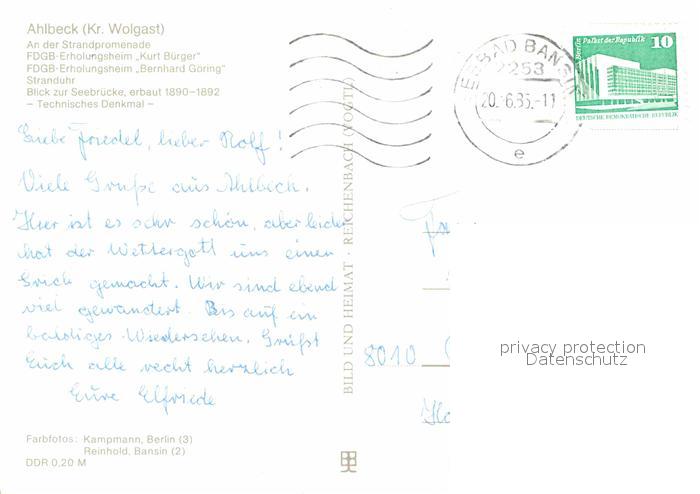 Ahlbeck (Kr. Wolgast)
An der Strandpromenade
FDGB-Erholungsheim „Kurt Bürger“
FDGB-Erholungsheim „Bernhard Göring“
Stranduhr
Blick zur Seebrücke, erbaut 1890–1892
– Technisches Denkmal –
Liebe Friedel, lieber Rolf!
Viele Grüße aus Ahlbeck.
Hier ist es sehr schön, aber leider
hat der Wettergott uns einen
Strich gemacht. Wir sind ebend
viel gewandert. Bis auf ein
baldiges Wiedersehen. Grüßt
Euch alle recht herzlich
Eure Elfriede
Farbfotos: Kampmann, Berlin (3)
Reinhold, Bansin (2)
DDR 0,20 M
BILD UND HEIMAT · REICHENBACH (VOGTL)
SEEBAD BANSIN
2253
20.-6.85.-11
e
Berlin Palast der Republik
10
DEUTSCHE DEMOKRATISCHE REPUBLIK
8010
privacy protection
Datenschutz